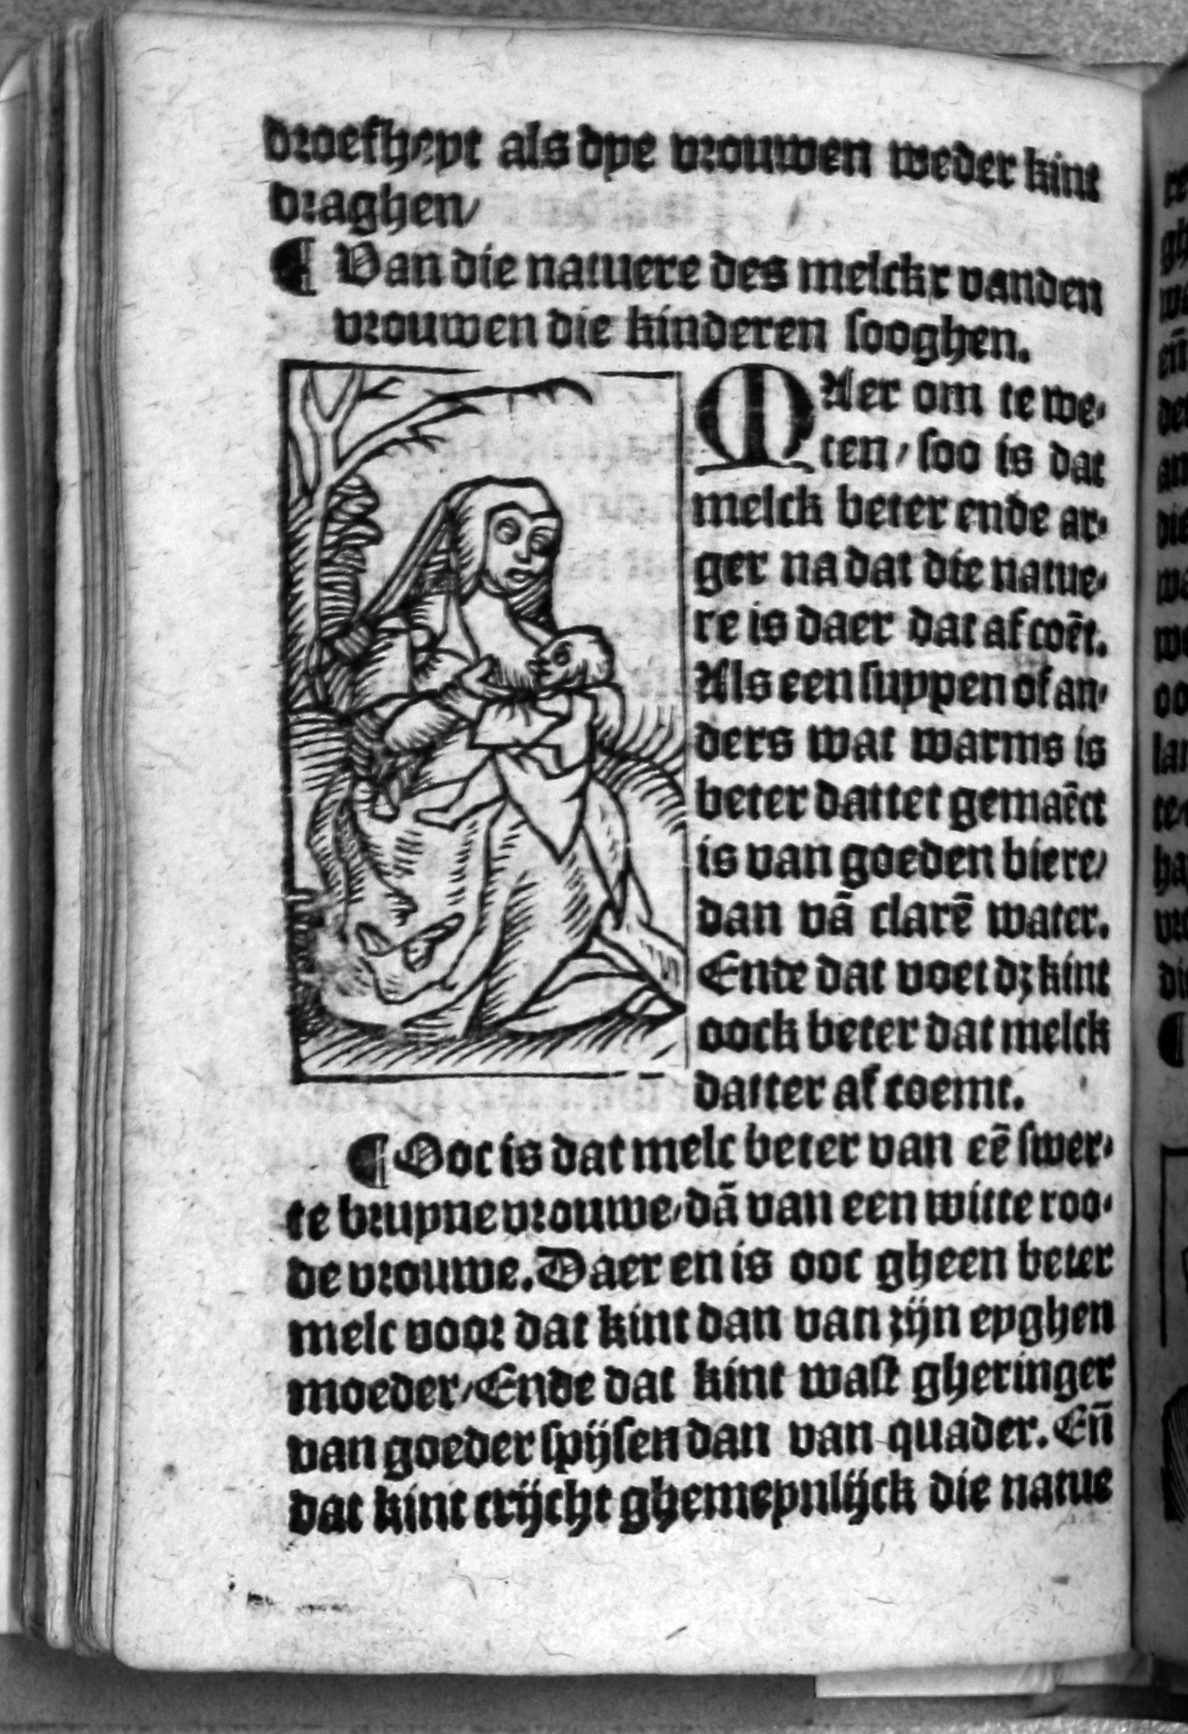 droefheyt als dye vrouwen weder kint
draghen/
¶ Van die natuere des melckx vanden
vrouwen die kinderen sooghen.
MAer om te we-
ten/ soo is dat
melck beter ende ar-
ger na dat die natue-
re is daer dat af coēt.
Als een suppen of an-
ders wat warms is
beter dattet gemaēct
is van goeden biere/
dan vā clarē water.
Ende dat voet dz kint
oock beter dat melck
datter af coemt.
¶ Ooc is dat melc beter van eē swer-
te bruyne vrouwe/ dā van een witte roo-
de vrouwe. Daer en is ooc gheen beter
melc voor dat kint dan van zijn eyghen
moeder/ Ende dat kint wast gheringer
van goeder spijsen dan van quader. Eñ
dat kint crijcht ghemeynlijck die natue